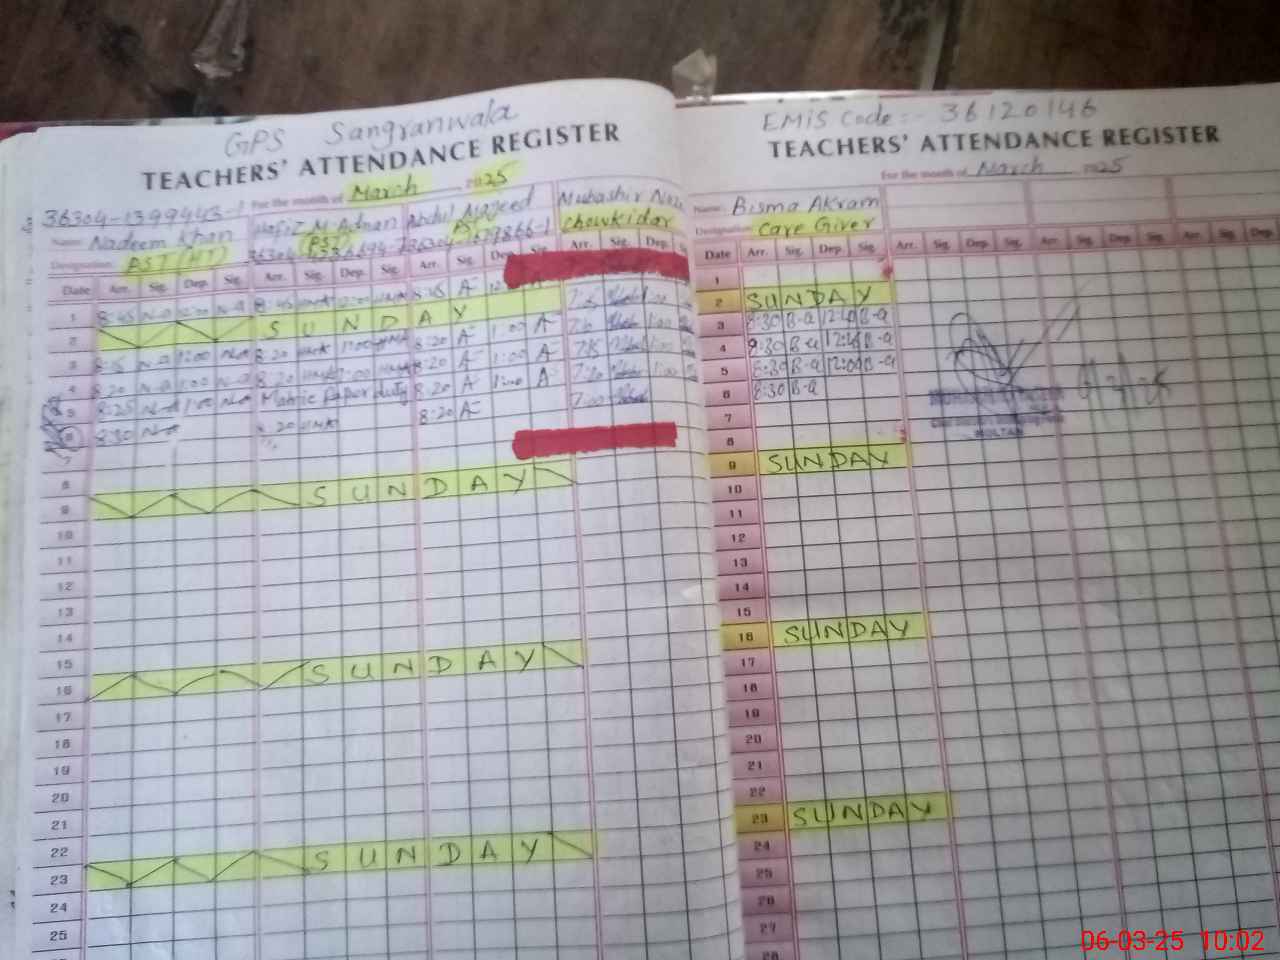 GPS Sangranwala
TEACHERS' ATTENDANCE REGISTER
For the month of March 2025
36304-1399443-1
Name: Nadeem Khan
Hafiz M Adnan
Abdul Majeed
Mubashir
Designation: AST (HT)
PST
Chowkidar
Date Arr. Sig. Dep. Sig. Arr. Sig. Dep. Sig. Arr. Sig. Sig. Arr. Sig. Dep. S
1 8:45 N-a 12:00 N-a 8:45 12:00 8:45 A
2 SUNDAY
3 8:15 N-a 1:00 N-a 8:20 1:00 8:20 A 1:00 A 1:00
4 8:20 N-a 1:00 N-a 8:20 8:20 A 1:00 A 1:00
5 8:25 N-a 1:00 N-a Matric Paper duty 8:20 A 1:00 A 7:20 1:00
6 8:30 N-a 8:20 8:20 A 7:00
7
8
9 SUNDAY
10
11
12
13
14
15
16 SUNDAY
17
18
19
20
21
22
23 SUNDAY
24
25
EMIS Code:- 36120146
TEACHERS' ATTENDANCE REGISTER
For the month of March 2025
Name: Bisma Akram
Designation: Care Giver
Date Arr. Sig. Dep. Sig. Arr. Sig. Dep. Sig. Arr. Sig. Dep. Sig. Arr. Sig. Dep.
1
2 SUNDAY
3 8:30 B-a B-a
4 8:30 B-a B-a
5 8:30 B-a 12:00 B-a
6 8:30 B-a
7
8
MULTAN
9 SUNDAY
10
11
12
13
14
15
16 SUNDAY
17
18
19
20
21
22
23 SUNDAY
24
25
26
27
28
06-03-25 10:02